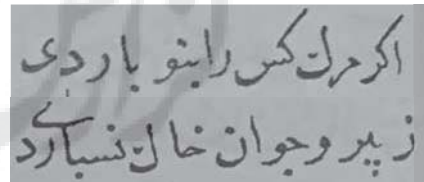 اکر مرك کس را بتو باز دی
ز پیر و جوان خاك نسپاردی